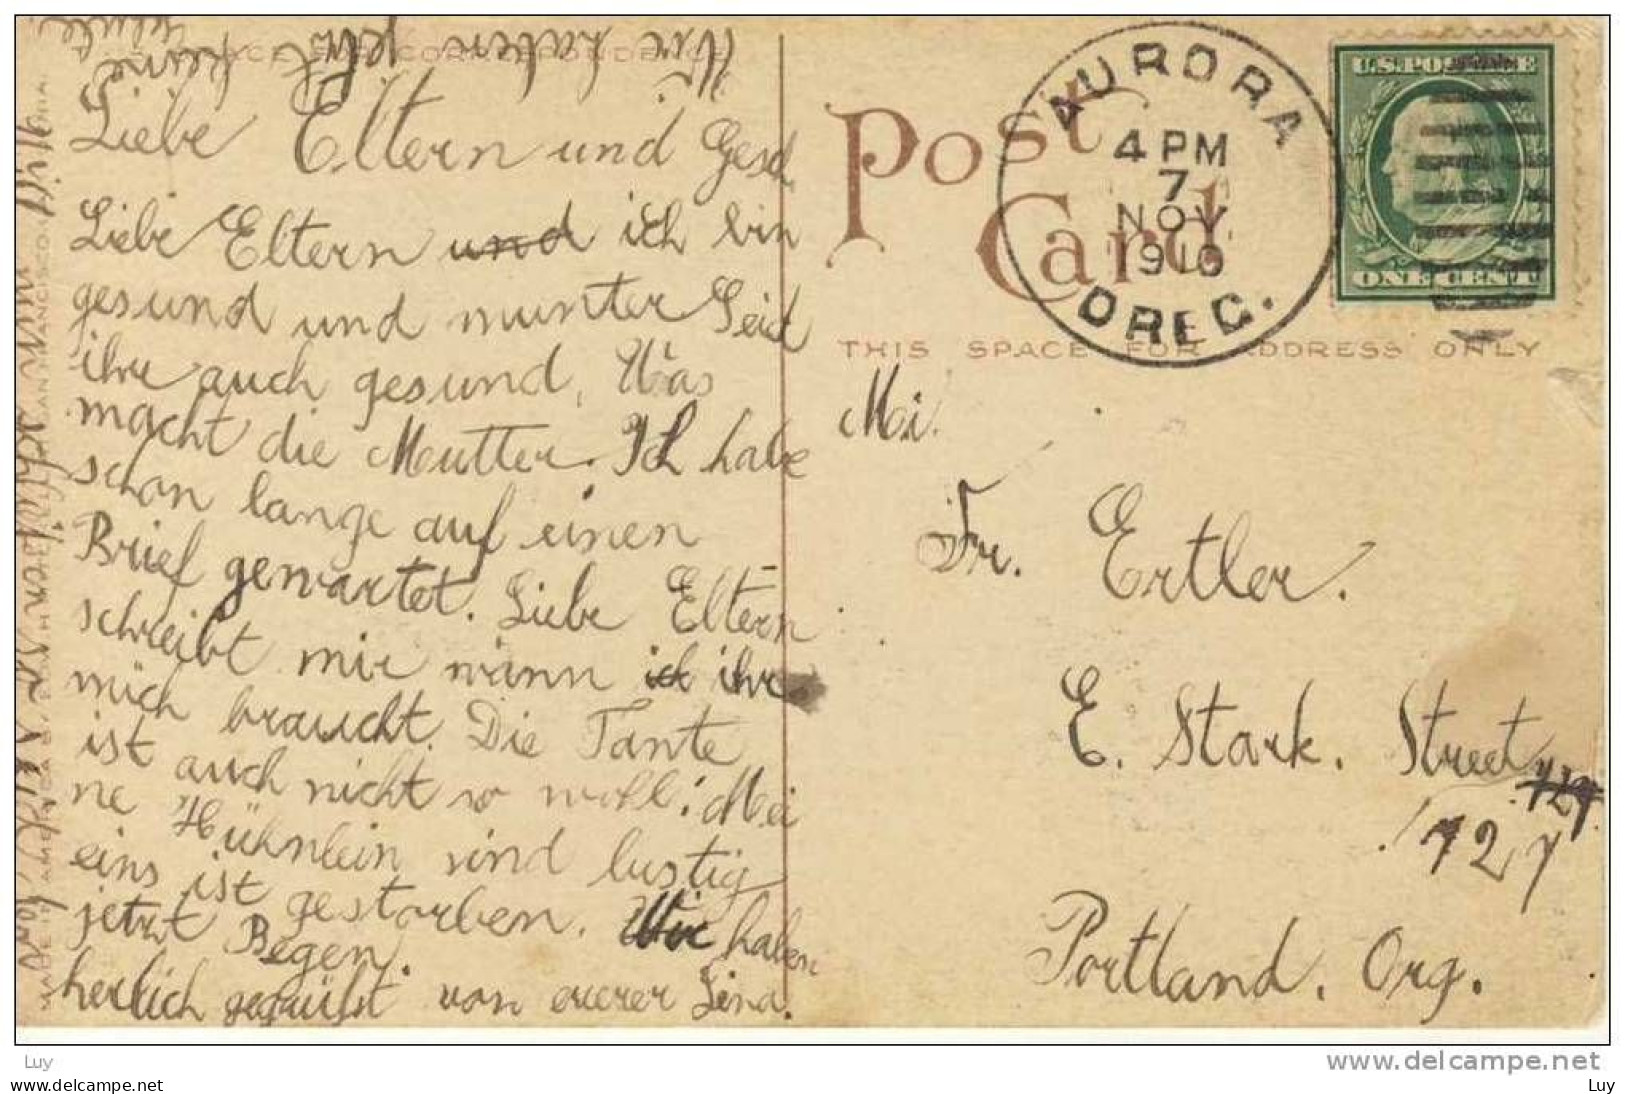 Liebe Eltern und Gesch.
Liebe Eltern und ich bin
gesund und munter Seid
ihr auch gesund, Was
macht die Mutter. Ich habe
schon lange auf einen
Brief gewartet. Liebe Eltern
schreibt mir wann ich ihr
mich braucht. Die Tante
ist auch nicht so wohl: Mei
ne Hühnlein sind lustig
eins ist gestorben. Wir haben
jetzt Regen.
herlich gegrüßt von eurer Lena.
Wir haben jetz keine
Schule
Post
Card
THIS SPACE FOR ADDRESS ONLY
AURORA
4 PM
7
NOV
1910
OREG.
U.S. POSTAGE
ONE CENT
Mi.
Fr. Ertler.
E. Stark. Street 727
727
Portland. Org.
Luy
www.delcampe.net
Luy
www.delcampe.net
Luy